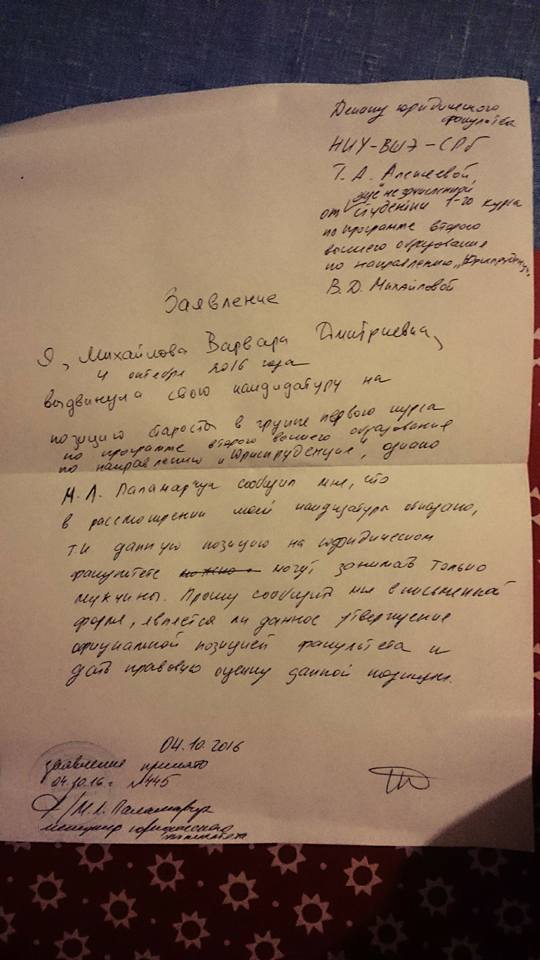 Декану юридического
факультета
НИУ-ВШЭ-СПб
Т. А. Алексеевой,
ещё не зачисленной
от студентки 1-го курса
по программе второго
высшего образования
по направлению „Юриспруденция"
В. Д. Михайловой
Заявление
Я, Михайлова Варвара Дмитриевна,
4 октября 2016 года
выдвинула свою кандидатуру на
позицию старосты в группе первого курса
по программе второго высшего образования
по направлению „Юриспруденция", однако
М. Л. Паламарчук сообщил мне, что
в рассмотрении моей кандидатуры отказано,
т.к данную позицию на юридическом
факультете можно могут занимать только
мужчины. Прошу сообщить мне в письменной
форме, является ли данное утверждение
официальной позицией факультета и
дать правовую оценку данной позиции.
04.10.2016
заявление принято
04.10.16 г. №445
/М. Л. Паламарчук
менеджер юридического
факультета